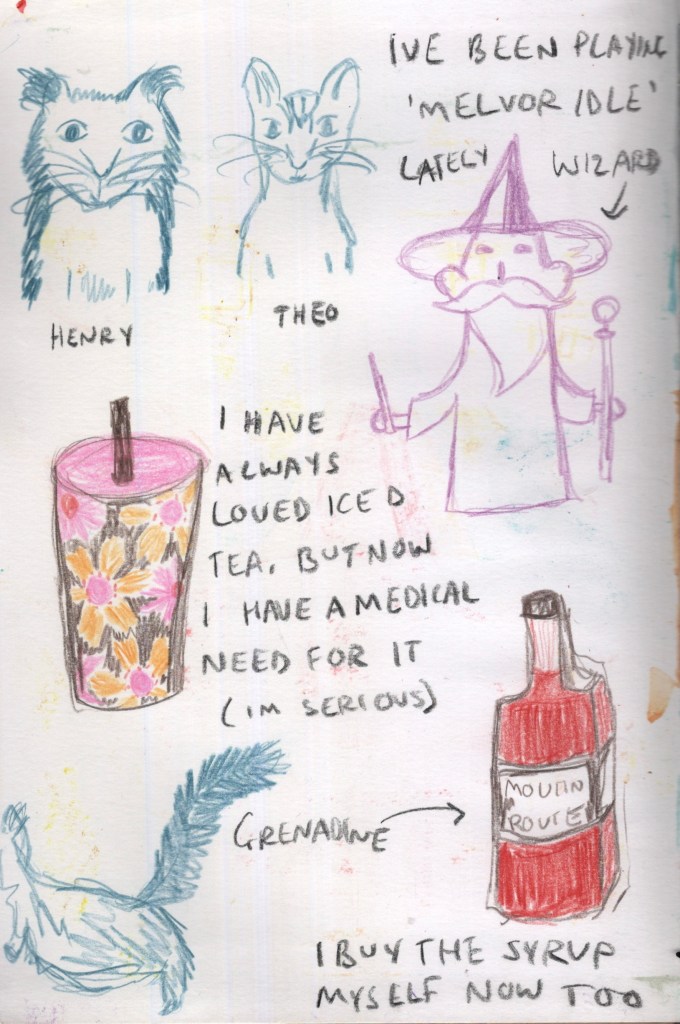 IVE BEEN PLAYING
'MELVOR IDLE'
LATELY
WIZARD
HENRY
THEO
I HAVE
ALWAYS
LOVED ICED
TEA. BUT NOW
I HAVE A MEDICAL
NEED FOR IT
(IM SERIOUS)
GRENADINE
MOUIN
ROUTE
I BUY THE SYRUP
MYSELF NOW TOO